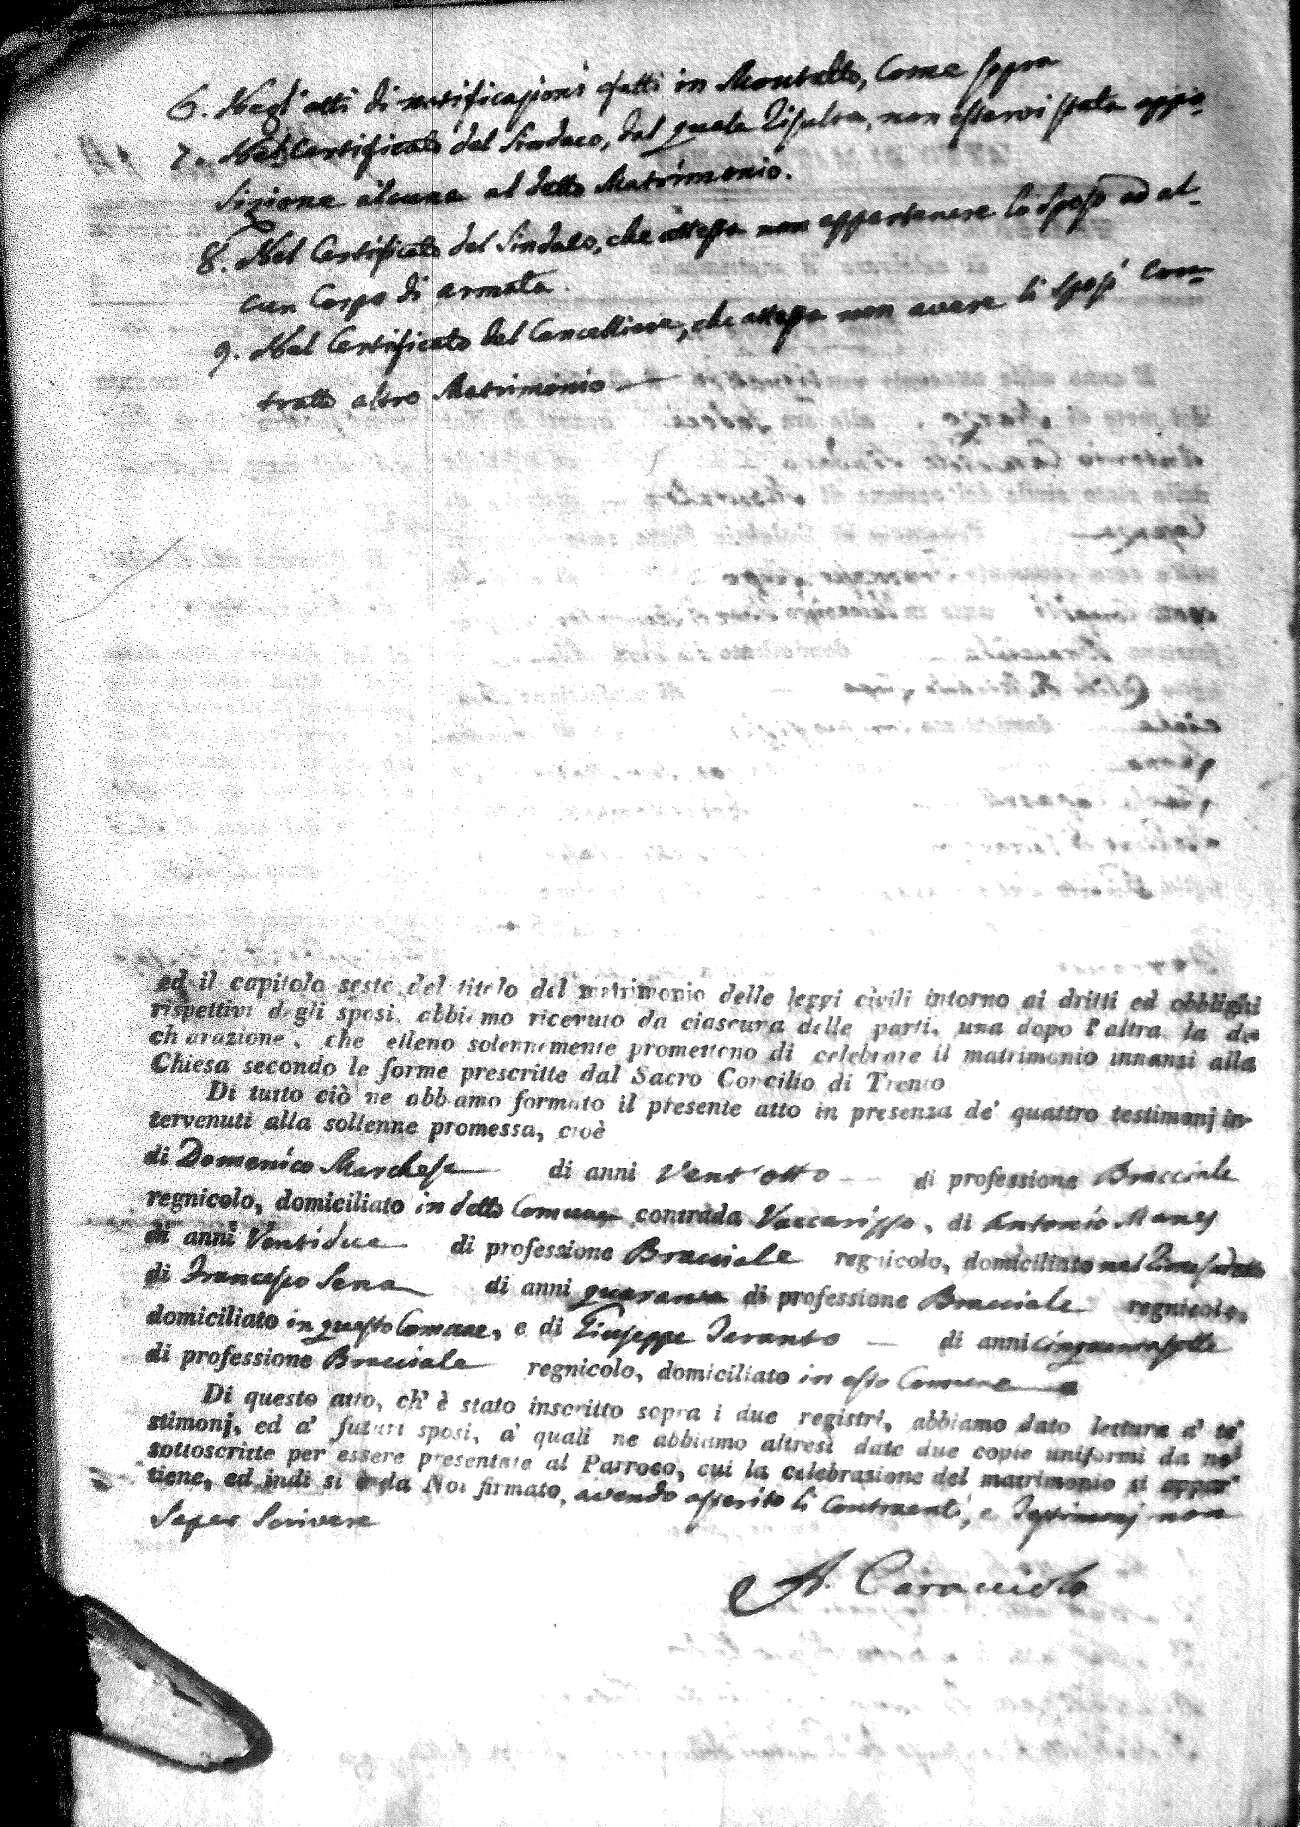 6. Negl'atti di notificazioni fatti in Montalto, come sopra
7. Nel Certificato del Sindaco, dal quale risulta, non esservi stata oppo-
sizione alcuna al detto Matrimonio.
8. Nel Certificato del Sindaco, che attesta non appartenere lo sposo ad al-
cun Corpo di armata.
9. Nel Certificato del Cancelliere, che attesta non avere li sposi con-
tratto altro Matrimonio
ed il capitolo sesto del titolo del matrimonio delle leggi civili intorno ai dritti ed obblighi
rispettivi degli sposi, abbiamo ricevuto da ciascuna delle parti, una dopo l'altra, la de-
chiarazione, che elleno solennemente promettono di celebrare il matrimonio innanzi alla
Chiesa secondo le forme prescritte dal Sacro Concilio di Trento
Di tutto ciò ne abbiamo formato il presente atto in presenza de' quattro testimonj in-
tervenuti alla sollenne promessa, cioè
di Domenico Marchese di anni Vent'otto di professione Bracciale
regnicolo, domiciliato in detto Comune contrada Vaccarizzo, di Antonio Manes
di anni Ventidue di professione Bracciale regnicolo, domiciliato nel
di Francesco Sena di anni quaranta di professione Bracciale regnicolo,
domiciliato in questo Comune, e di Giuseppe Teranto di anni cinquantasette
di professione Bracciale regnicolo, domiciliato in esso Comune
Di questo atto, ch' è stato inscritto sopra i due registri, abbiamo dato lettura a' te-
stimonj, ed a' futuri sposi, a' quali ne abbiamo altresì date due copie uniformi da noi
sottoscritte per essere presentate al Parroco, cui la celebrazione del matrimonio si appar-
tiene, ed indi si è da Noi firmato, avendo asserito li Contraenti, e Testimonj non
saper Scrivere
A. Caracciolo